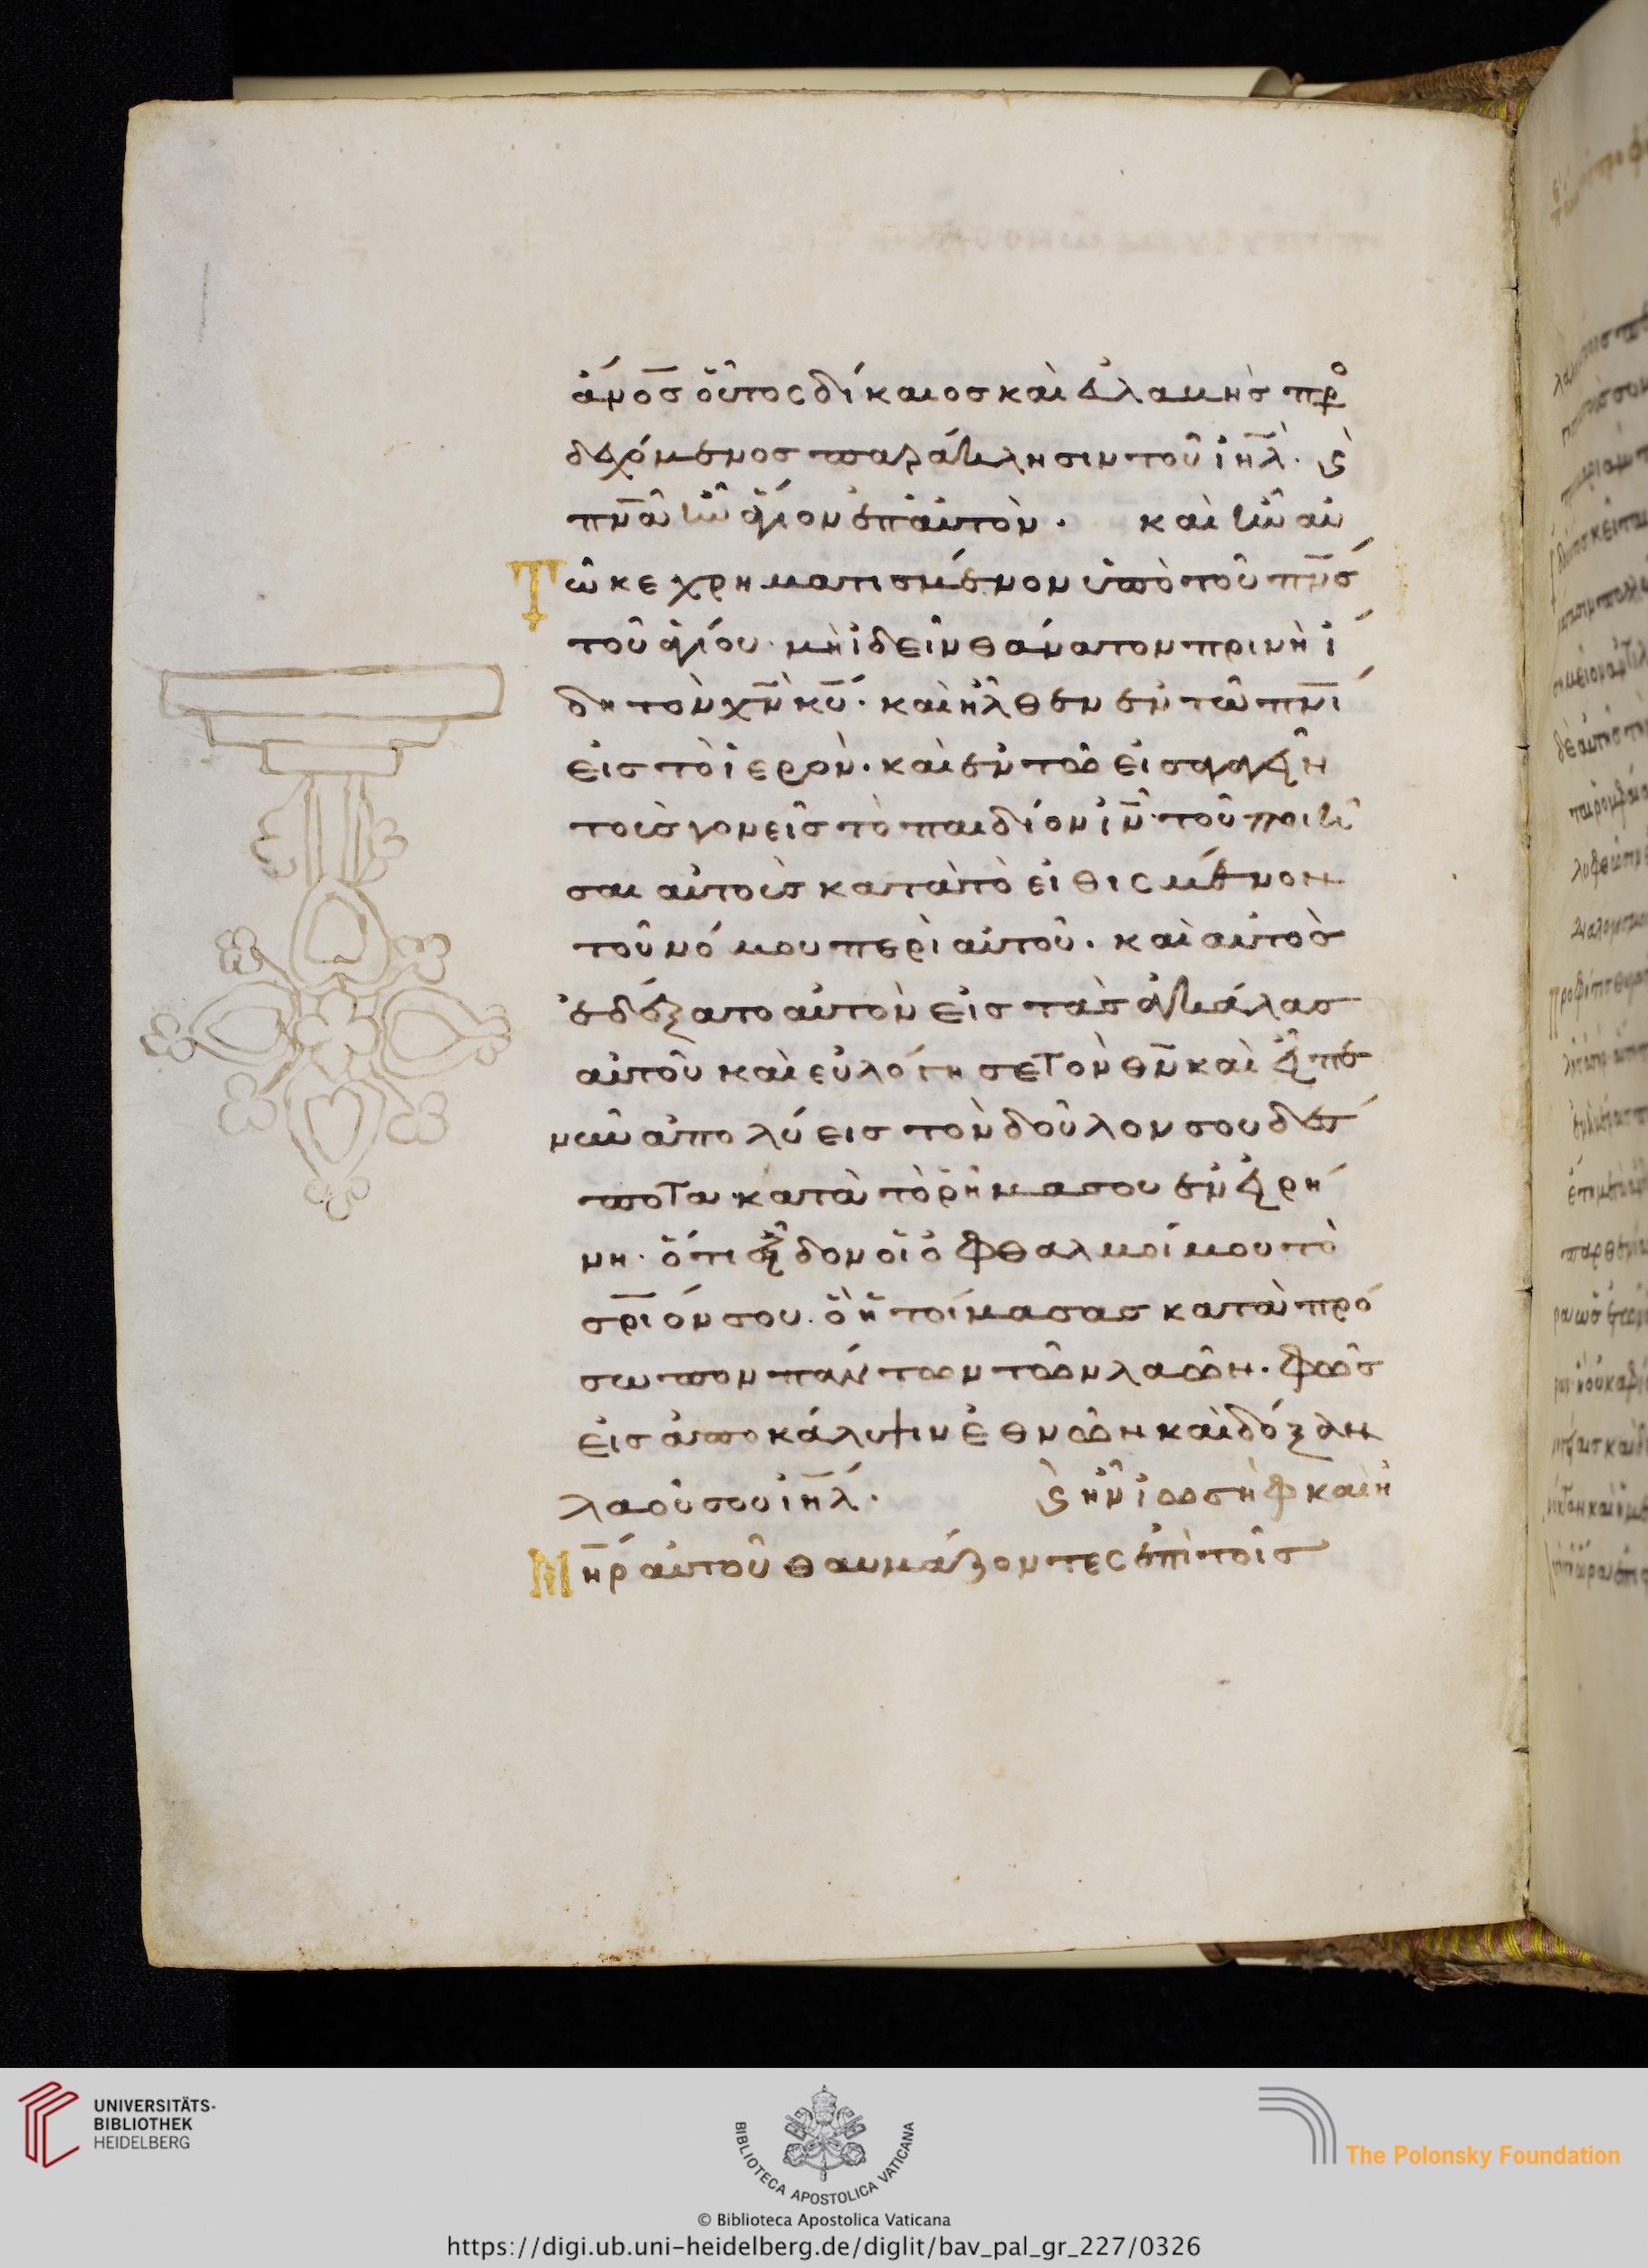 ἄνο̅ς οὗτος δίκαιος καὶ εὐλαβὴς προ
δεχόμενος παράκλησιν τοῦ ιη̅λ. κ̀
πν̅α ἦν ἅγιον ἐπ αὐτὸν. καὶ ἦν αὐ
Τῶ κεχρηματισμένον ὑπὸ τοῦ πν̅ς
τοῦ ἁγίου. μὴ ἰδεῖν θάνατον πρινὴ ἴ
δη τὸν χν̅ κυ̅. καὶ ἦλθεν ἐν τῶ πν̅ι
εἰς τὸ ἱερὸν. καὶ ἐν τῶ εἰσαγαγεῖν
τοὺς γονεῖς τὸ παιδίον ιν̅. τοῦ ποιῆ
σαι αὐτοὺς κατὰ τὸ εἰθισμένον
τοῦ νόμου περὶ αὐτοῦ. καὶ αὐτὸς
ἐδέξατο αὐτὸν εἰς τὰς ἀγκάλας
αὐτοῦ καὶ εὐλόγησε τὸν θν̅ καὶ εἶπε
νῦν ἀπολύεις τὸν δοῦλον σου δέσ
ποτα. κατὰ τὸ ῥῆμα σου ἐν εἰρή
νη. ὅτι εἶδον οἱ ὀφθαλμοί μου τὸ
σρ̅ιόν σου. ὃ ἡτοίμασας κατὰ πρό
σωπον πάντων τῶν λαῶν. φῶς
εἰς ἀποκάλυψιν ἐθνῶν καὶ δόξαν
λαοῦ σου ιη̅λ. κ̀ ἦν ἰωσὴφ καὶ ἡ
Μη̅ρ αὐτοῦ θαυμάζοντες ἐπὶ τοῖς
UNIVERSITÄTS-
BIBLIOTHEK
HEIDELBERG
BIBLIOTECA APOSTOLICA VATICANA
The Polonsky Foundation
© Biblioteca Apostolica Vaticana
https://digi.ub.uni-heidelberg.de/diglit/bav_pal_gr_227/0326